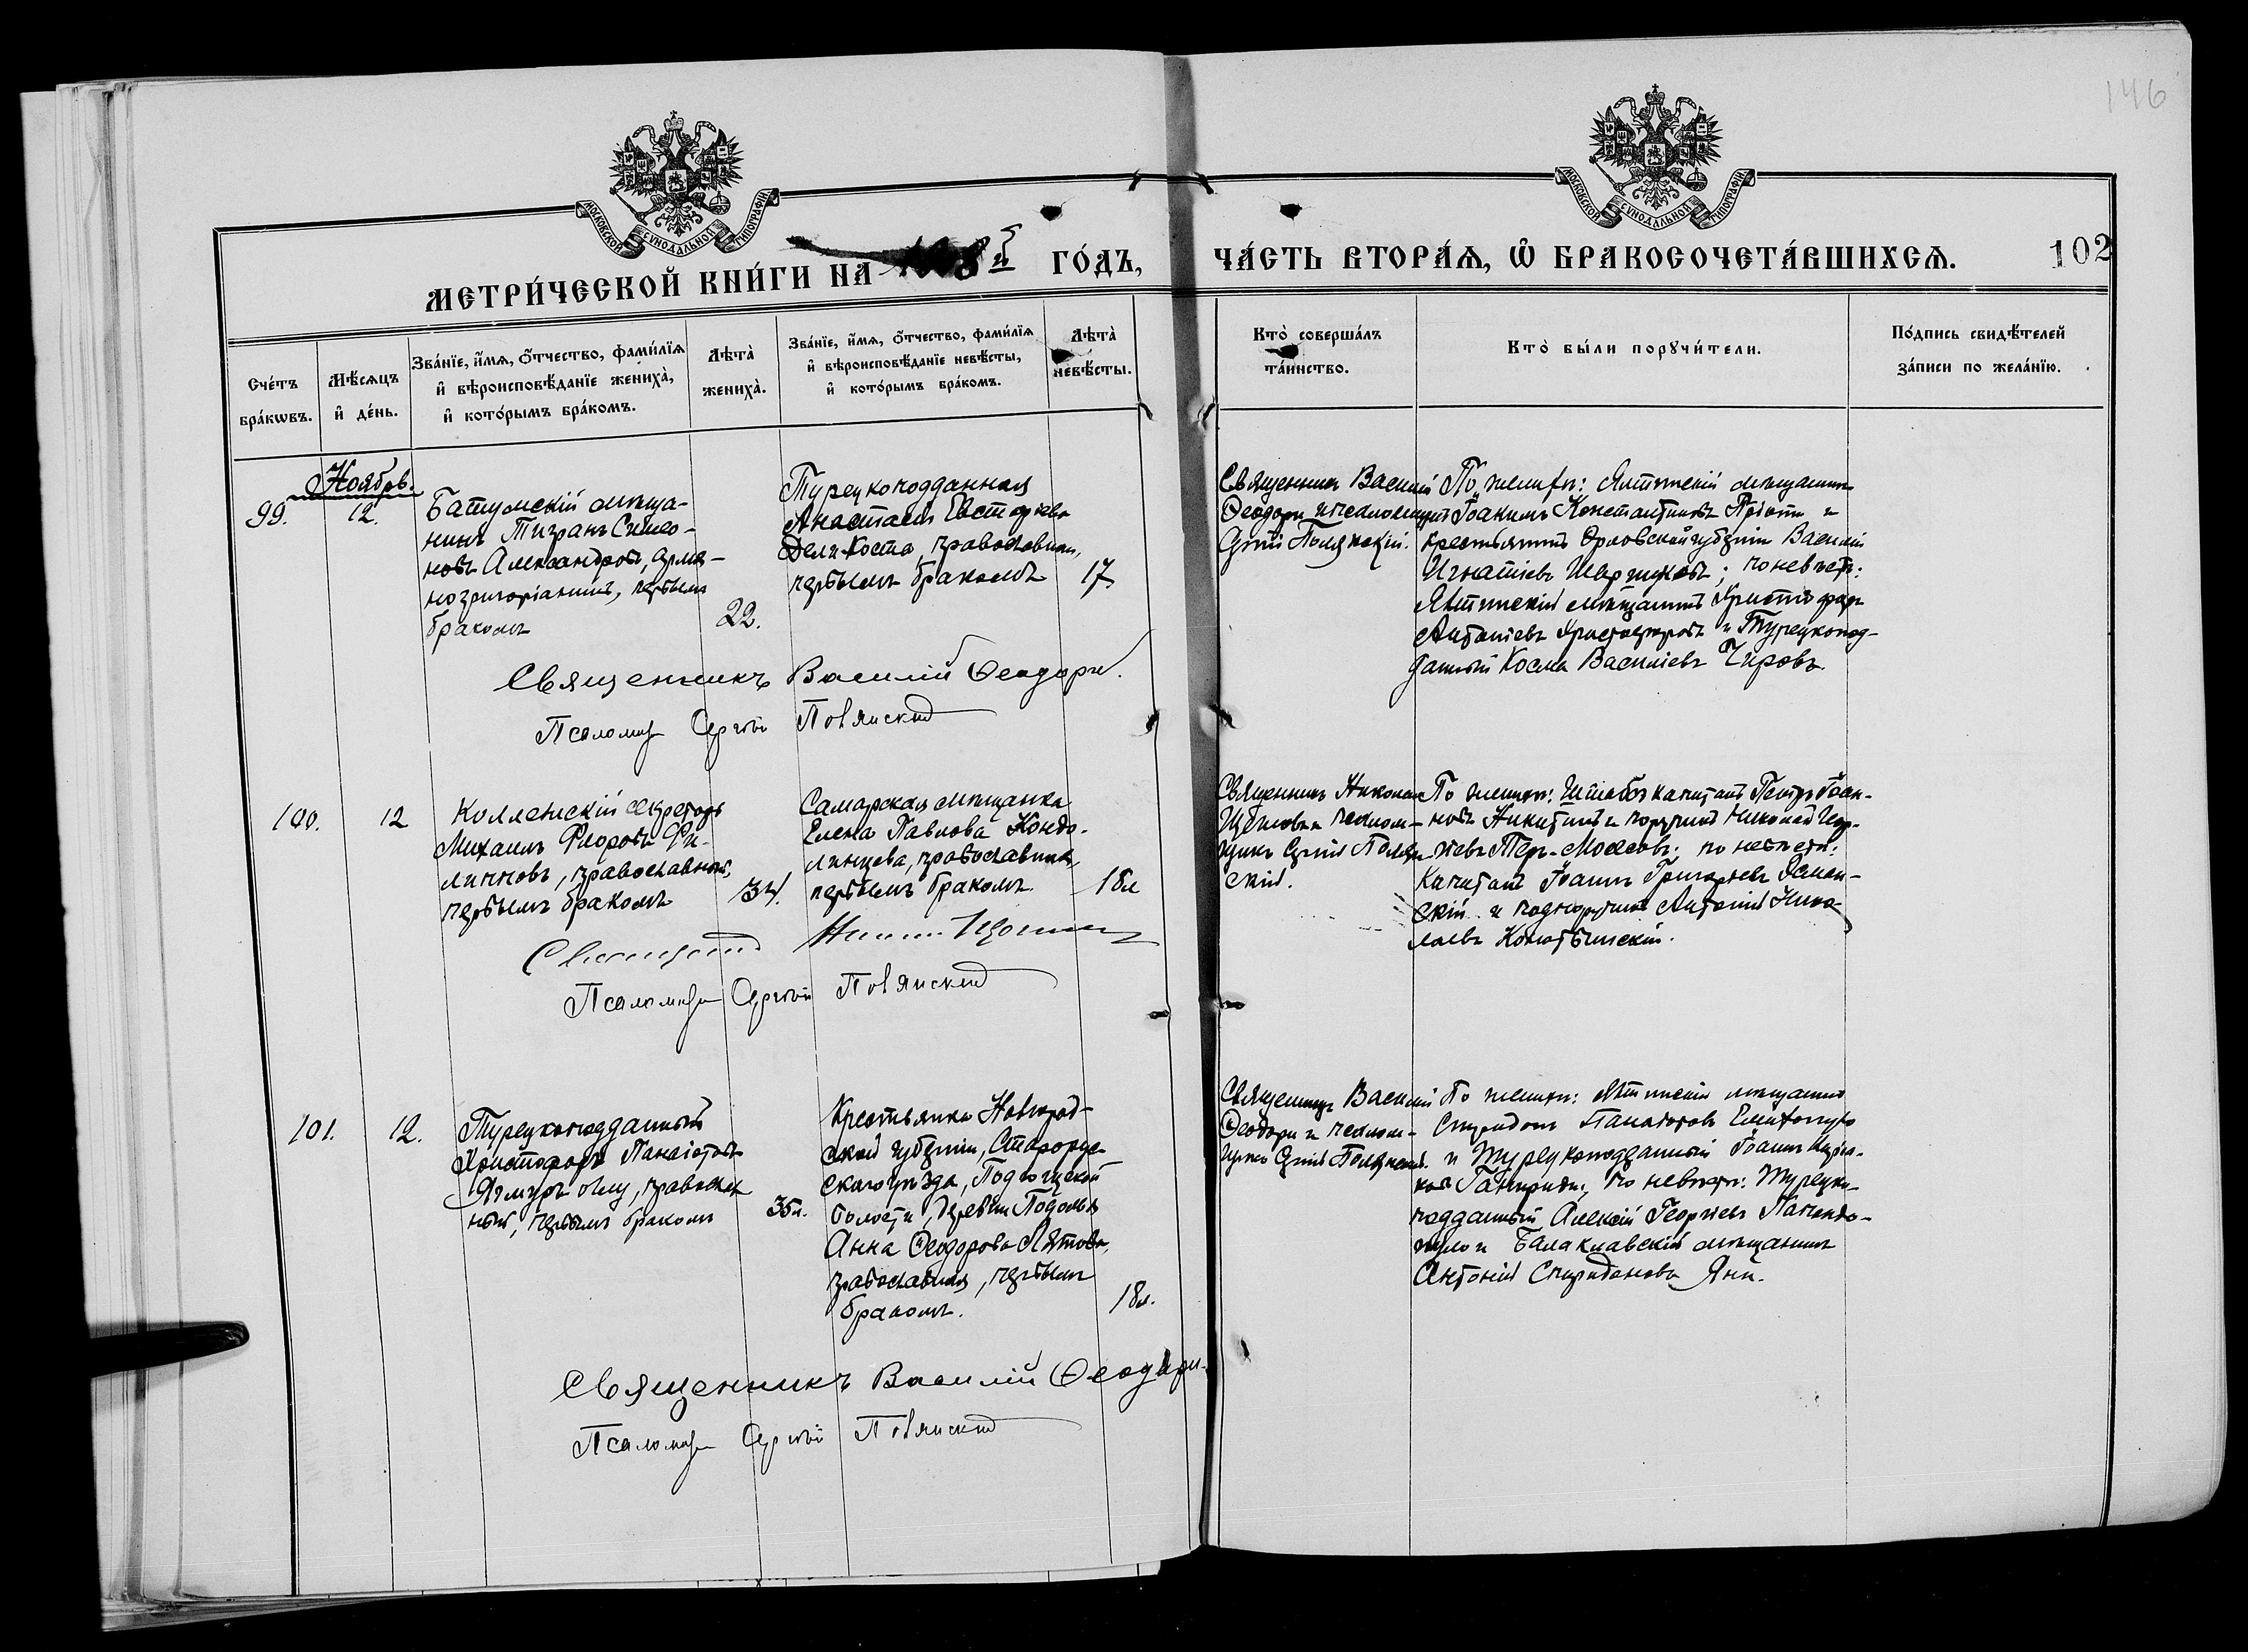 146
МОСКОВСКОЙ СѴНОДАЛЬНОЙ ТИПОГРАФІИ
МОСКОВСКОЙ СѴНОДАЛЬНОЙ ТИПОГРАФІИ
МЕТРИ́ЧЕСКОЙ КНИ́ГИ НА 8й ГО́ДЪ,
ЧА́СТЬ ВТОРА́Ѧ, Ѽ БРАКОСОЧЕТА́ВШИХСѦ.
102
Сче́тъ бра́кѡвъ.
Мѣ́сѧцъ и҆ де́нь.
Зва́нїе, и҆́мѧ, ѻ҆́тчество, фами́лїѧ
и҆ вѣроисповѣ́данїе жениха̀,
и҆ кото́рымъ бра́комъ.
Лѣта̀ жениха̀.
Зва́нїе, и҆́мѧ, ѻ҆́тчество, фами́лїѧ
и҆ вѣроисповѣ́данїе невѣ́сты,
и҆ кото́рымъ бра́комъ.
Лѣта̀ невѣ́сты.
Кто̀ соверша́лъ та́инство.
Кто̀ бы́ли порꙋчи́тели.
По́дпись свидѣ́телей
за́писи по жела́нїю.
Ноябрь.
99.
12.
Батумскій мѣща-
нинъ Тигранъ Симео-
новъ Александровъ, армя-
ногригоріанинъ, первымъ
бракомъ
22.
Турецкоподданная
Анастасія Евстафіева
Дели-Коста, православная,
первымъ бракомъ
17.
Священникъ Василій
Ѳеодори и псаломщикъ
Сергій Полянскій.
По женихѣ: Ялтинскій мѣщанинъ
Іоакимъ Константиновъ и
крестьянинъ Орловской губерніи Василій
Игнатіевъ; по невѣстѣ:
Ялтинскій мѣщанинъ Христофоръ
Антоніевъ Христофоровъ и Турецкопод-
данный Косма Василіевъ Чировъ.
Священникъ Василій Ѳеодори.
Псаломщ Сергій Полянскій
100.
12
Коллежскій секретарь
Михаилъ Ѳеодоровъ Фи-
липповъ, православный,
первымъ бракомъ
34.
Самарская мѣщанка
Елена Павлова Кондо-
линцева, православная,
первымъ бракомъ
18л
Священникъ Николай
Щегловъ и псалом-
щикъ Сергій Полян-
скій.
По женихѣ: Штабсъ капитанъ Петръ Іоан-
новъ Никитинъ и поручикъ Николай Геор-
гіевъ Теръ-Мосесовъ; по невѣстѣ:
Капитанъ Іоаннъ Григорьевъ
скій и подпоручикъ Антоній Нико-
лаевъ
Священникъ
Псаломщ Сергій Полянскій
101.
12.
Турецкоподданный
Христофоръ Панаіотовъ
оглу, православ
ный, первымъ бракомъ
35л.
Крестьянка Новгород-
ской губерніи, Старорус-
скаго уѣзда,
волости, деревни Подолья
Анна Ѳеодорова
православная, первымъ
бракомъ.
18л.
Священникъ Василій
Ѳеодори и псалом-
щикъ Сергій Полянскій.
По женихѣ: Ялтинскій мѣщанинъ
Спиридонъ Панаіотовъ
и Турецкоподданный Іоаннъ
по невѣстѣ: Турецко-
подданный Алексій Георгіевъ
и Балаклавскій мѣщанинъ
Антоній Спиридоновъ Яни.
Священникъ Василій Ѳеодори.
Псаломщ Сергій Полянскій